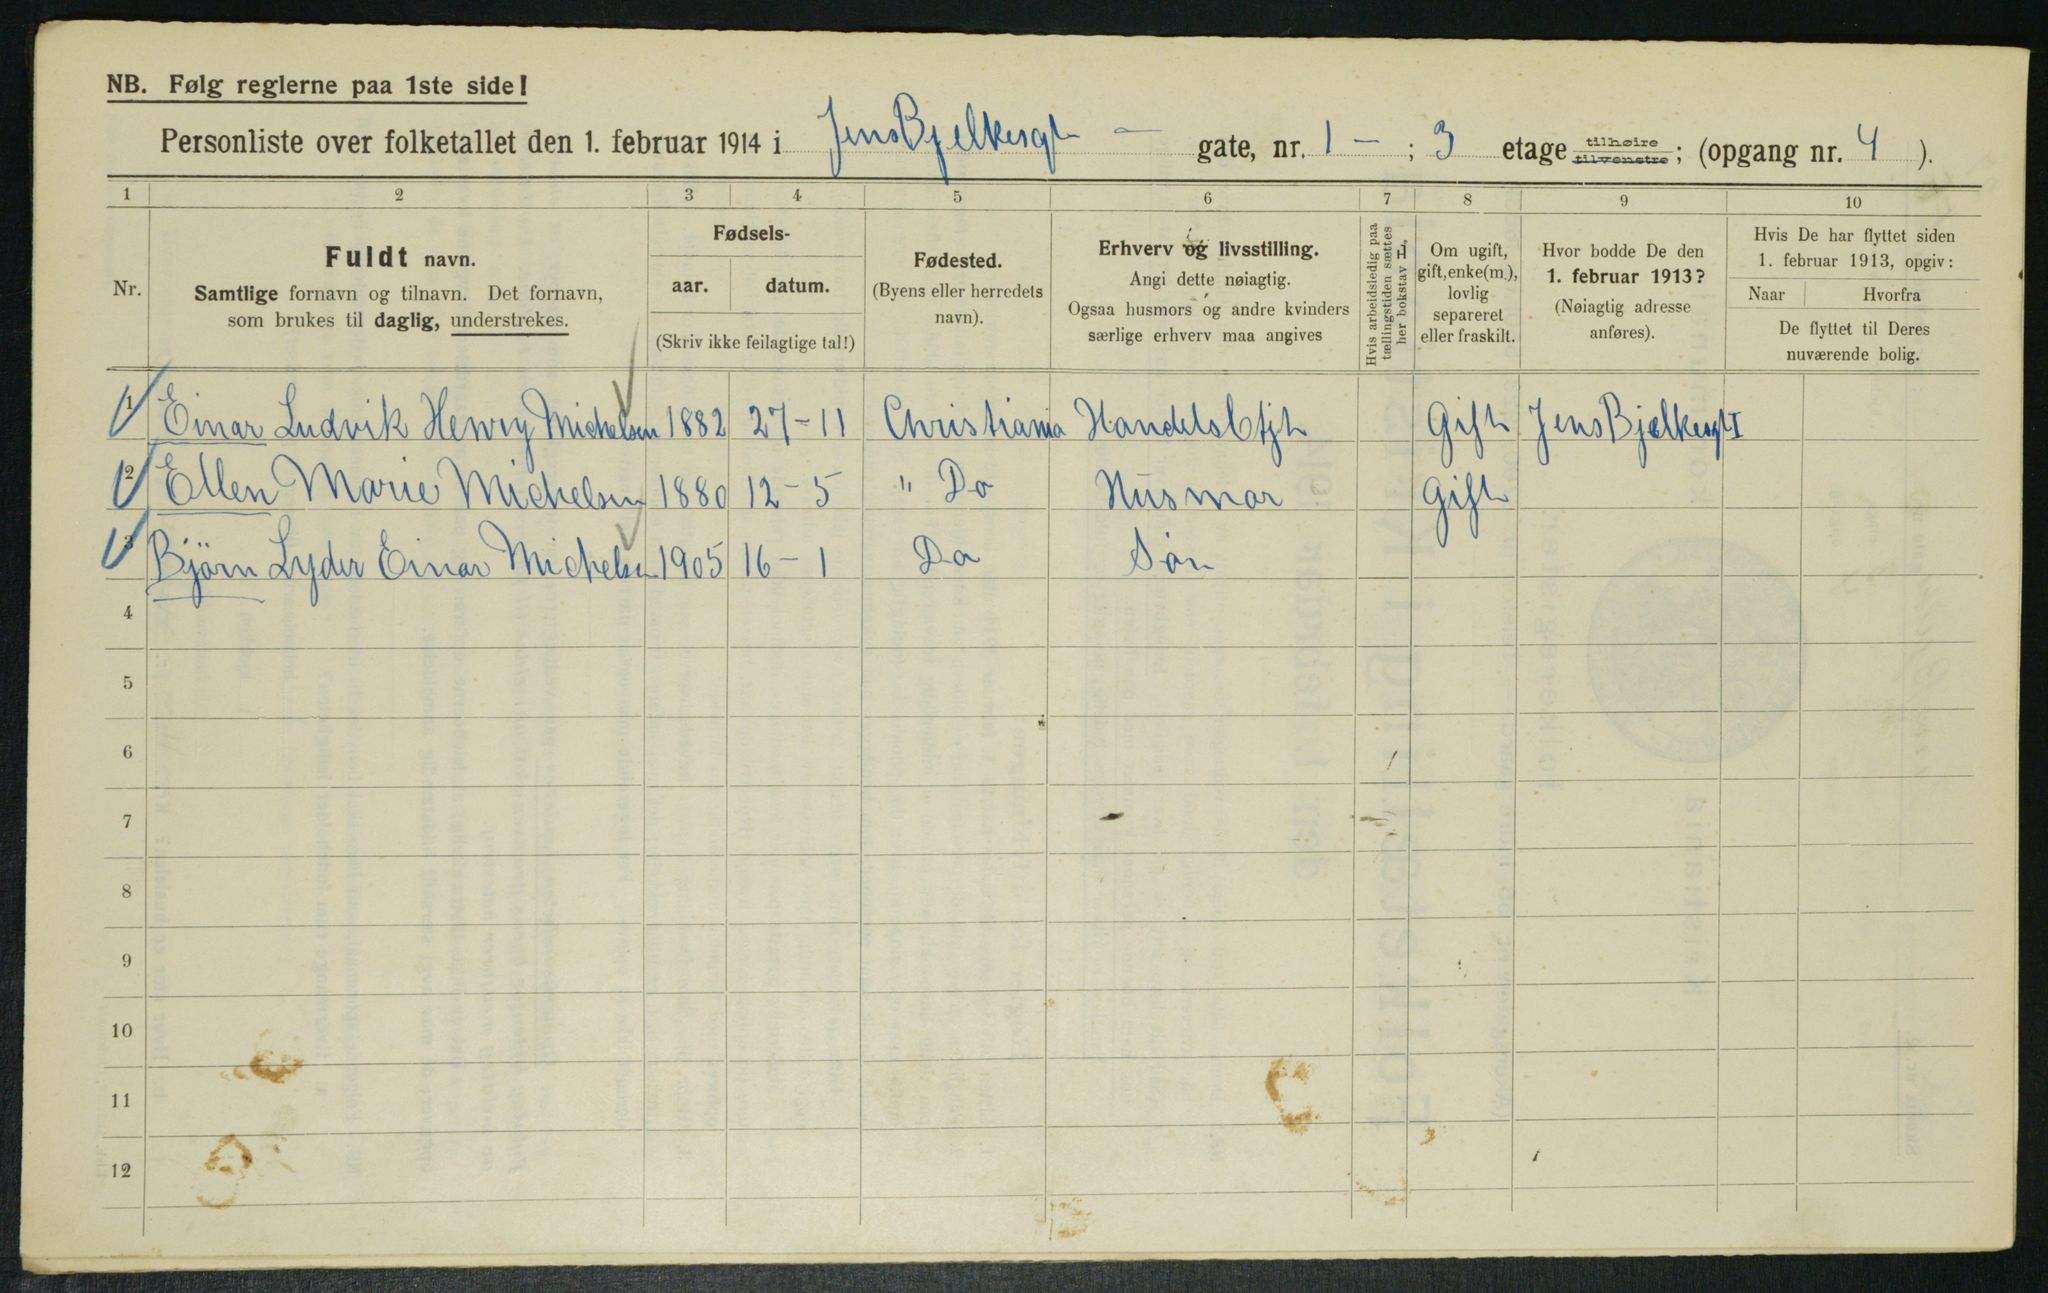 NB. Følg reglerne paa 1ste side!
Personliste over folketallet den 1. februar 1914 i Jens Bjelkesgt — gate, nr. 1 – ; 3 etage tilhøire tilvenstre; (opgang nr. 4 ).
1 2 3 4 5 6 7 8 9 10
Nr.
Fuldt navn.
Samtlige fornavn og tilnavn. Det fornavn,
som brukes til daglig, understrekes.
Fødsels-
aar. datum.
(Skriv ikke feilagtige tal!)
Fødested.
(Byens eller herredets
navn).
Erhverv og livsstilling.
Angi dette nøiagtig.
Ogsaa husmors og andre kvinders
særlige erhverv maa angives
Hvis arbeidsledig paa
tællingstiden sættes
her bokstav L.
Om ugift,
gift, enke(m.),
lovlig
separeret
eller fraskilt.
Hvor bodde De den
1. februar 1913?
(Nøiagtig adresse
anføres).
Hvis De har flyttet siden
1. februar 1913, opgiv:
Naar Hvorfra
De flyttet til Deres
nuværende bolig.
1 Einar Ludvik Henry Michelsen 1882 27–11 Christiania Handelsbtjt Gift Jens Bjelkesgt I
2 Ellen Marie Michelsen 1880 12–5 " Do Husmor Gift
3 Björn Lyder Einar Michelsen 1905 16–1 Do Sön
4
5
6
7
8
9
10
11
12